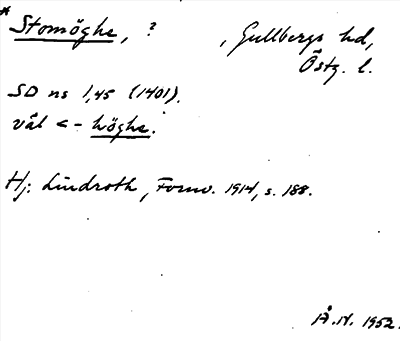 * Stomöghe, ? , Gullbergs hd,
Östg. l.
SD ns 1,45 (1401).
väl <- höghe.
Hj. Lindroth, Fornv. 1914, s. 188.
Å.N. 1952.